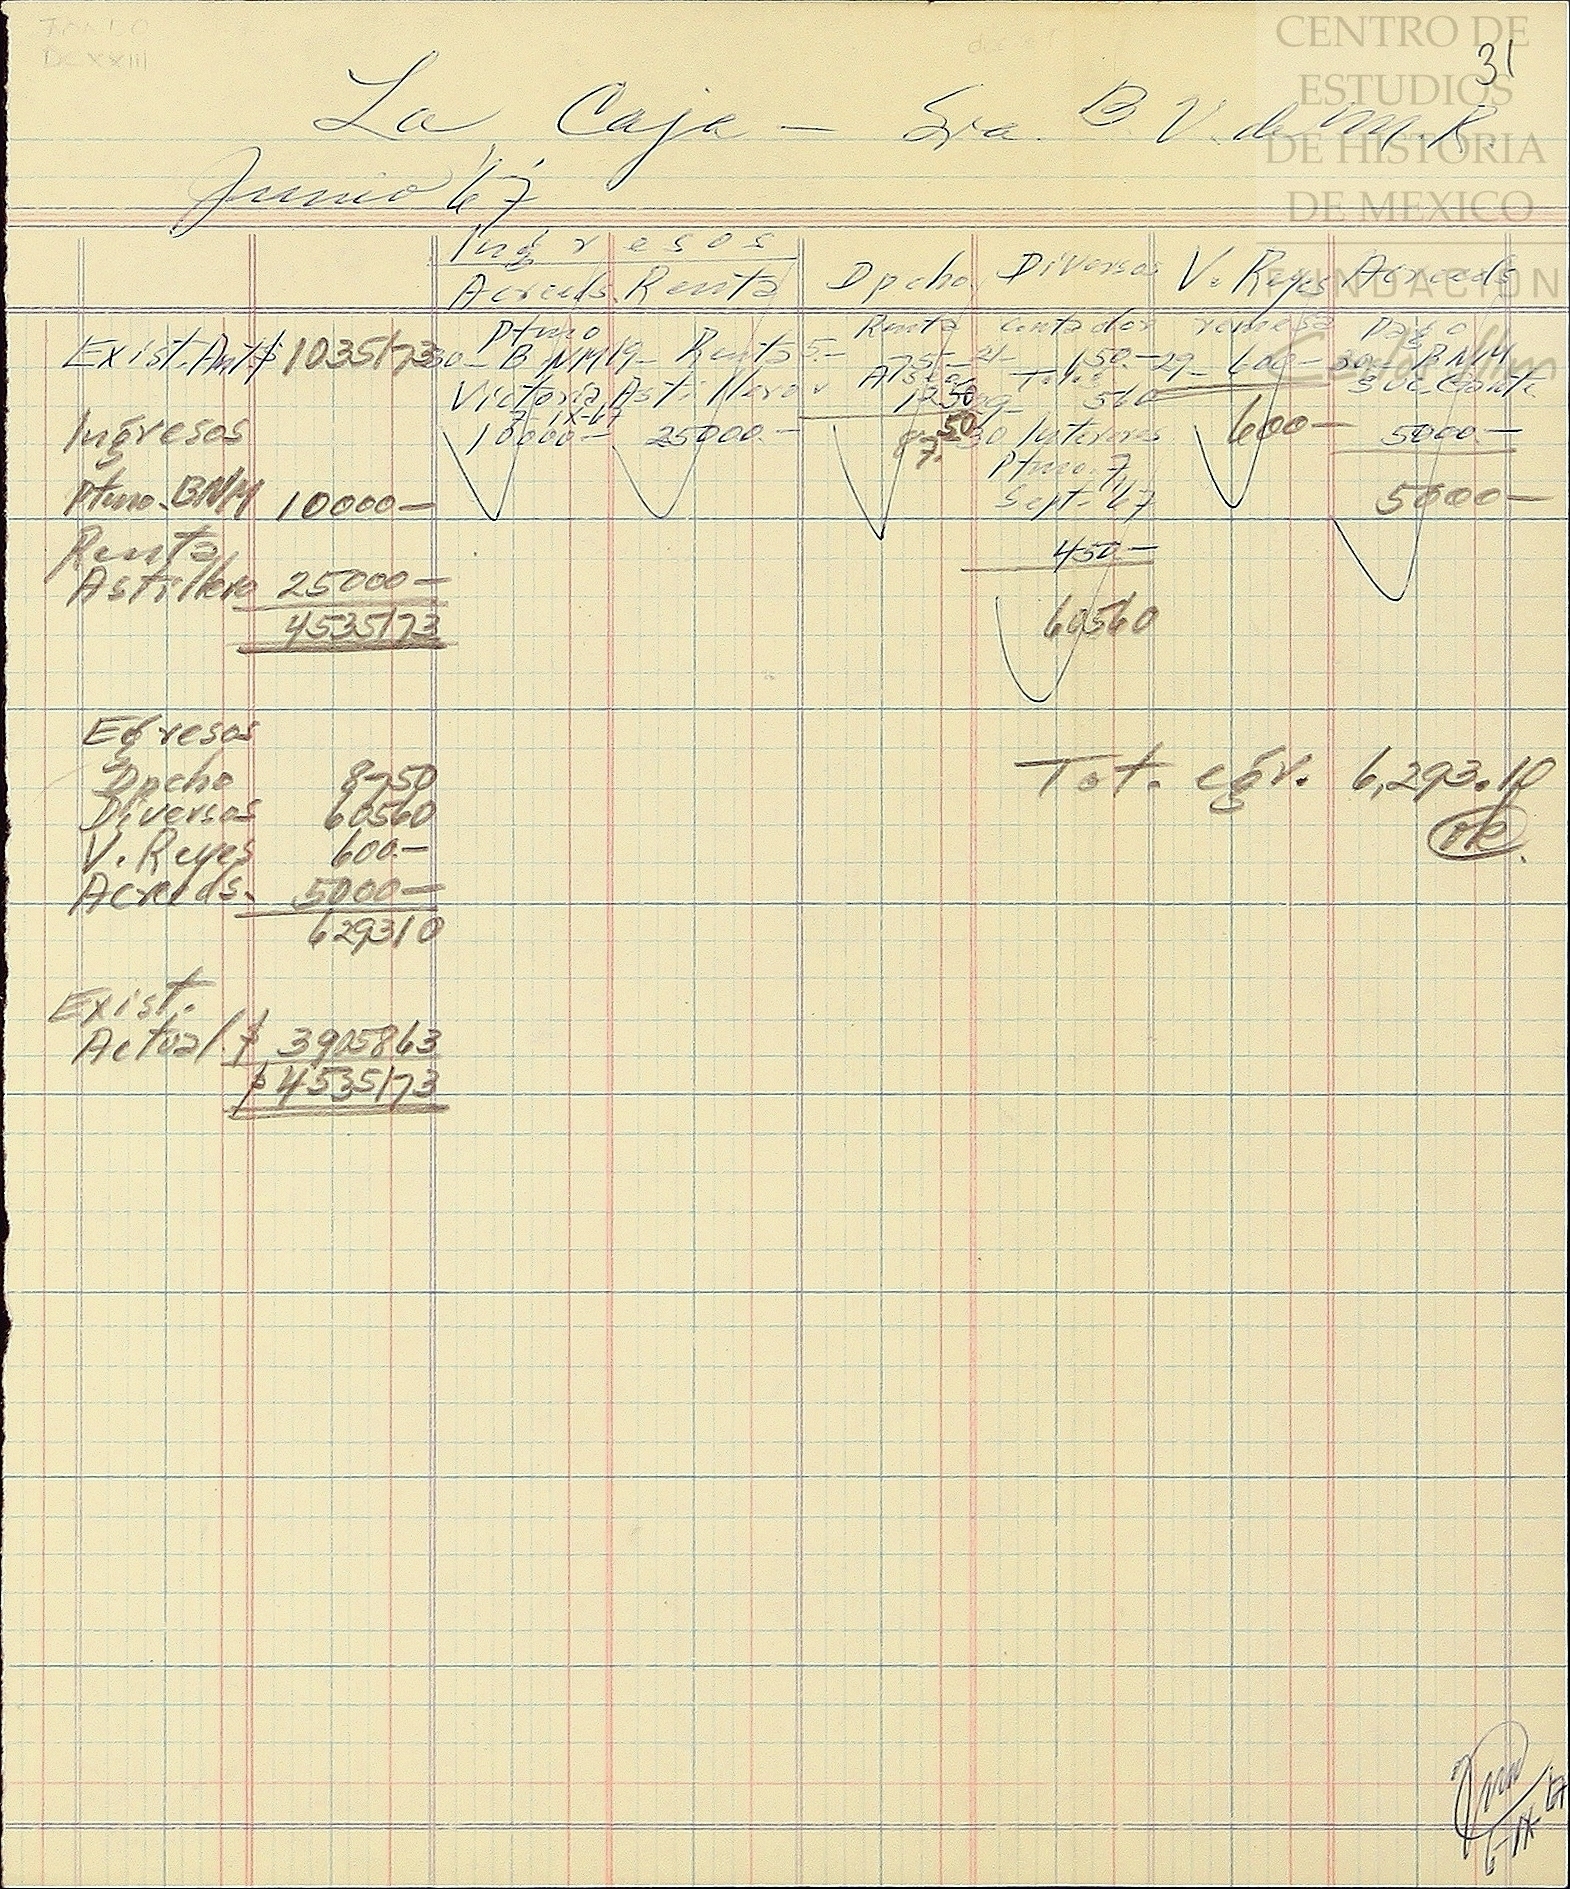 CENTRO DE
ESTUDIOS
DE HISTORIA
DE MEXICO
FUNDACION
31
La Caja - Sra. B. V. de M. R.
Junio '67
Ingresos
Acreeds. Renta Dpcho. Diversos V. Reyes Acreeds
Ptmo Renta contador remesa Pago
Exist. Ant. $ 1035173 30- B NM 19- Renta 5.- 75- 21- 150.- 29- 600- 30- B NM
Victoria Astillero Tel. 5 60
7-IX-67 12 50
Ingresos 10000.- 25000.- 87.50 30 Intereses 600- 5000.-
Ptmo. 7
Ptmo. BNM 10000- Sept. '67 5000-
Renta 450.-
Astillero 25000-
4535173 60560
Egresos
Dpcho 8750 Tot. egr. 6,293.10
Diversos 60560 ok.
V. Reyes 600.-
Acreeds. 5000-
629310
Exist.
Actual $ 3905863
$ 4535173
6-IX-67